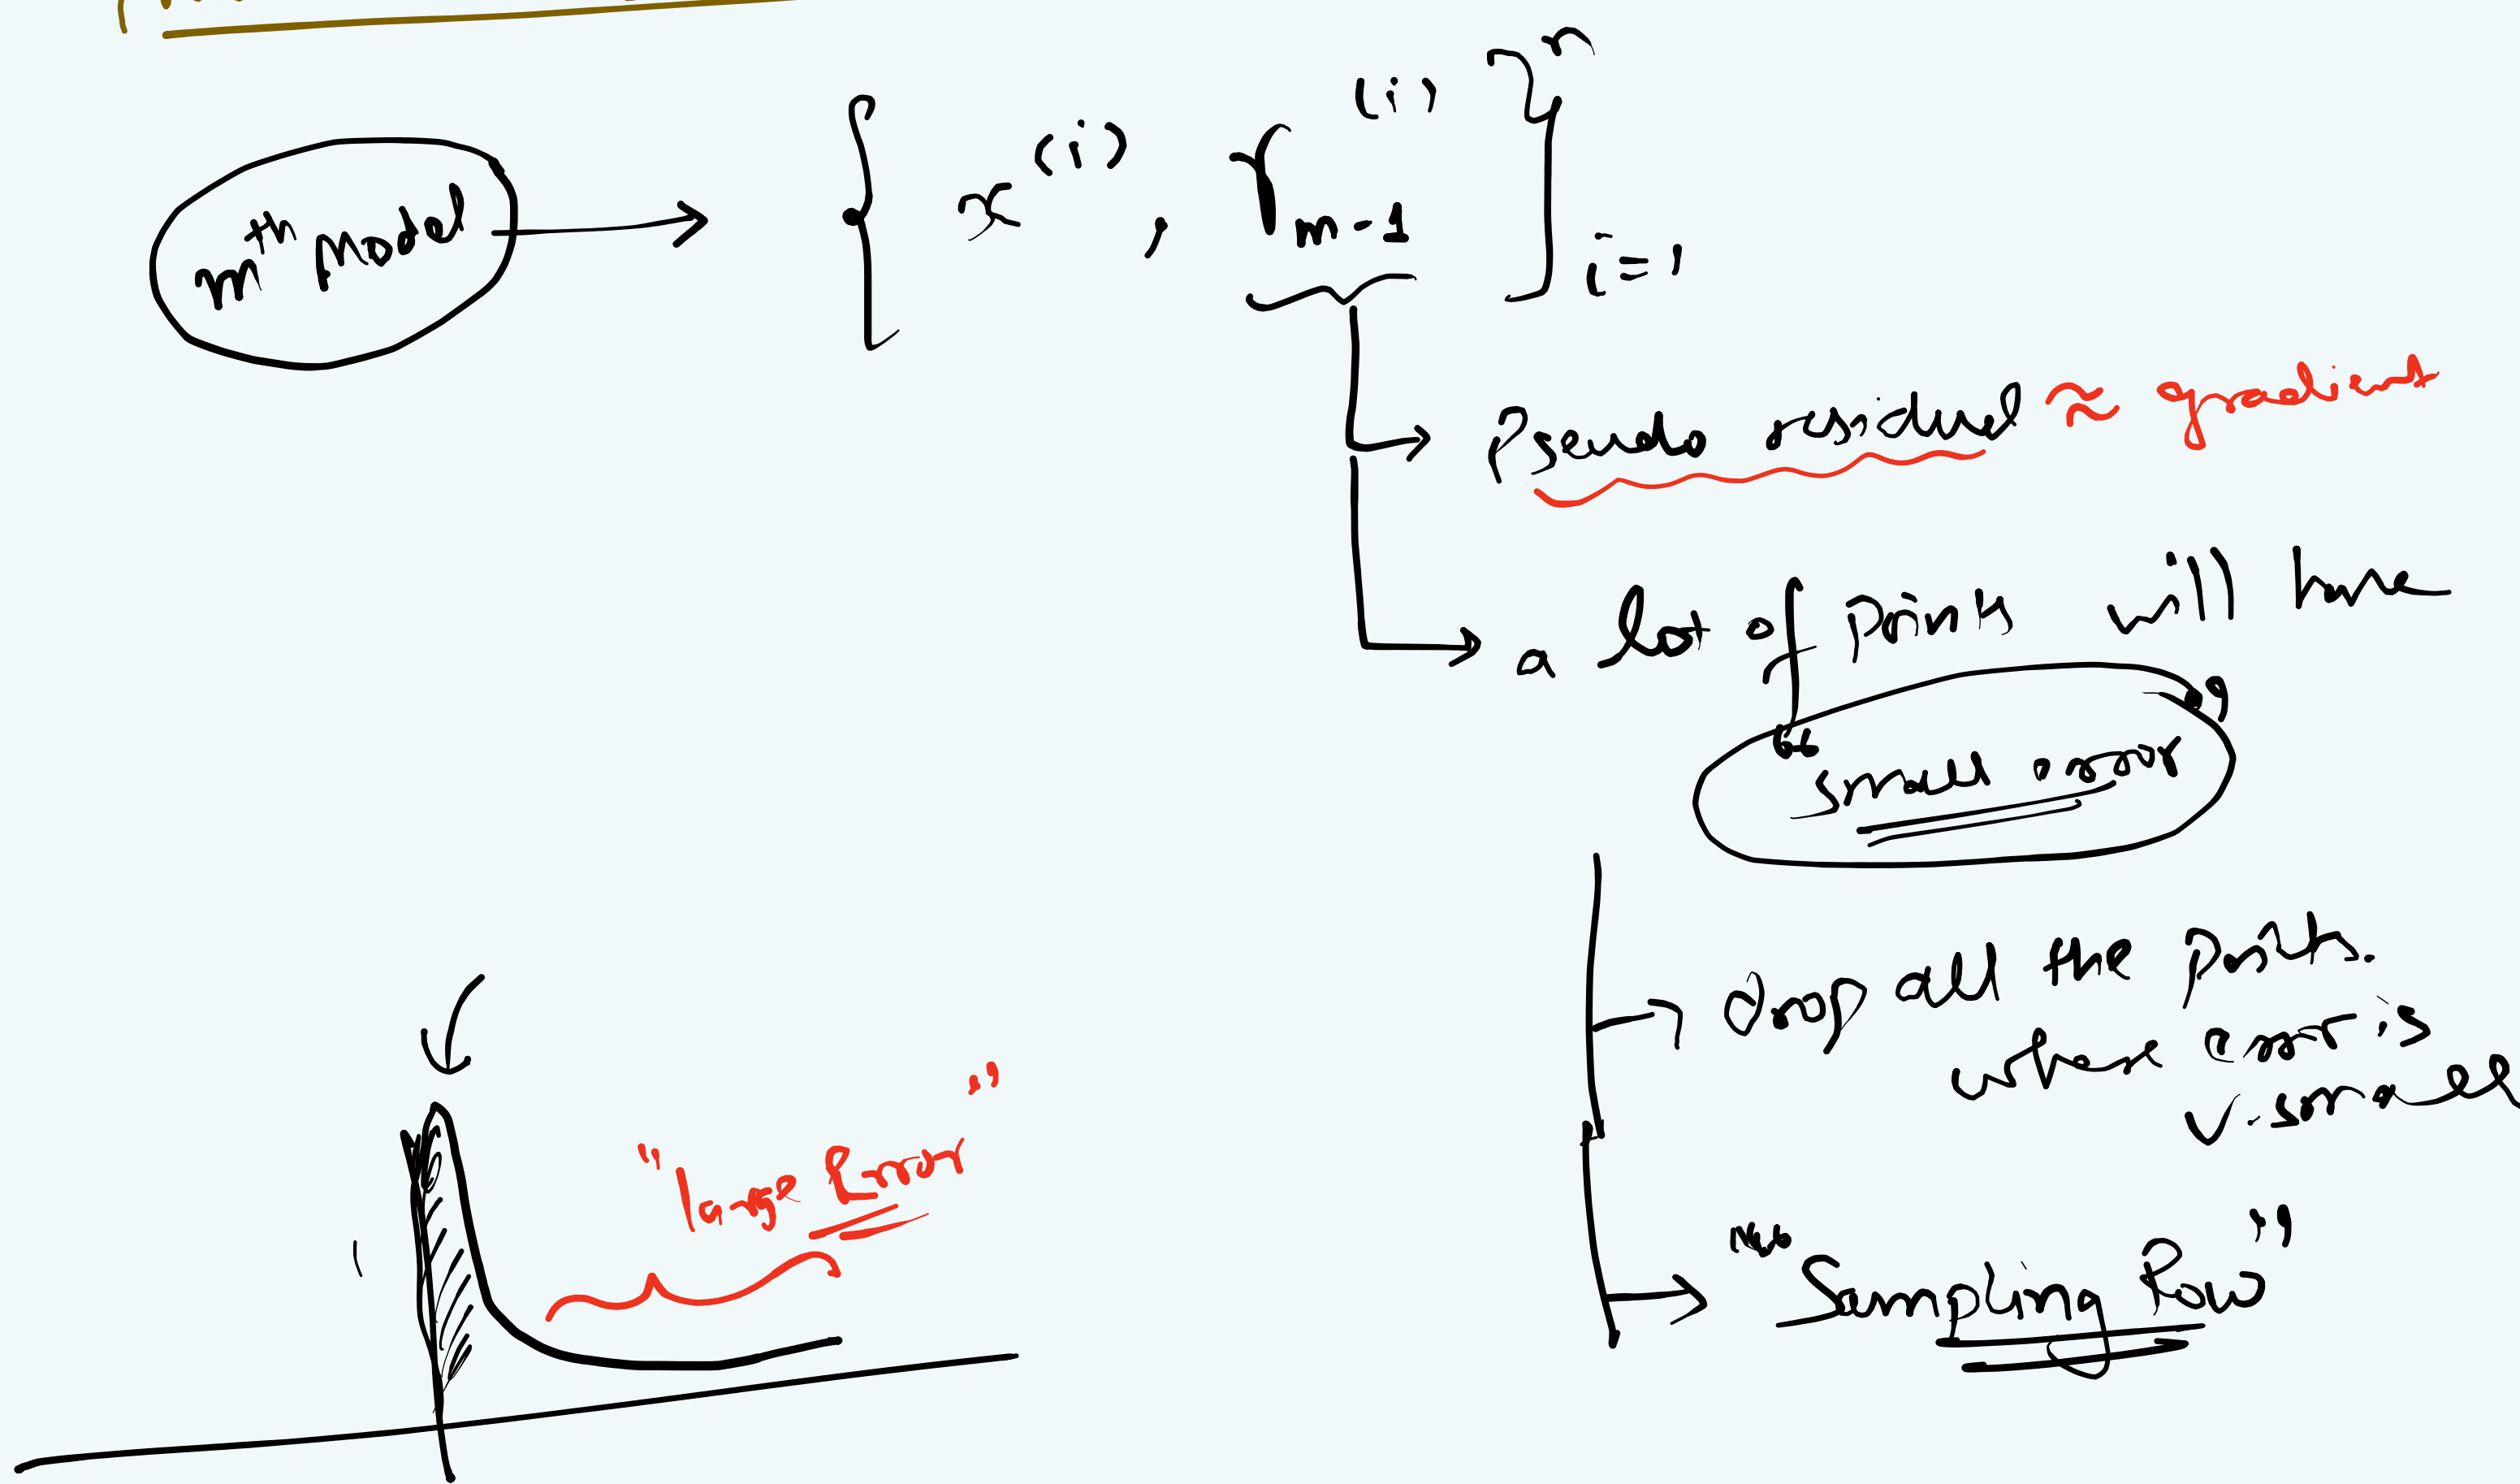 mth Model → { x^(i), r_{m-1}^(i) }_{i=1}^n
Pseudo residual ≈ gradient
a lot of points will have
"small error"
Drop all the points.
where error is
v. small
"Large Error"
"Sampling Row"